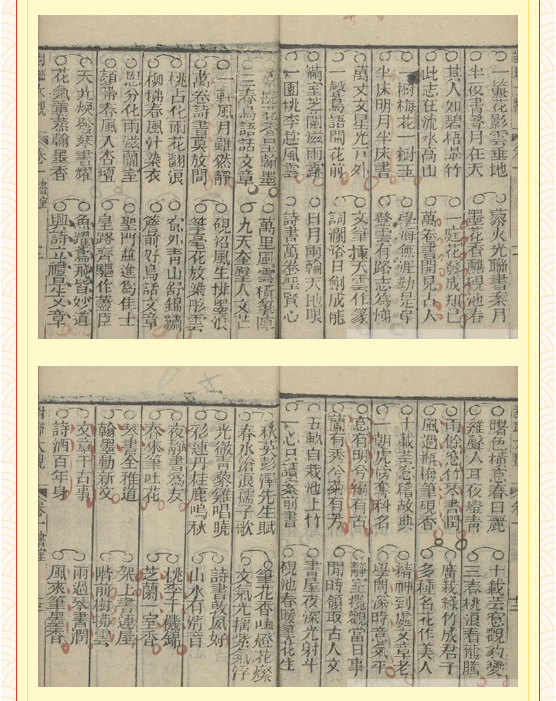 一簾花影雲垂地
半夜書聲月在天
其人如碧梧翠竹
此志在流水高山
一樹梅花一樹玉
半床明月半床書
萬丈文星光戶外
一聲鳥語開花前
滿室芝蘭滋雨露
一園桃李起風雲
藜火光聯書案月
墨花香襯硯池春
一庭花發成知己
萬卷書開見古人
學海無涯勤是岸
登雲有路志為梯
文筆揮天雲作篆
詞瀾浴日劍成龍
日月兩輪天地眼
詩書萬卷聖賢心
院花香呈翰墨
三春鳥語話文章
一軒風月雖然靜
萬卷詩書莫放閒
桃占化雨花翻浪
柳帶春風汁染衣
思分化雨滋蘭室
顏帶春風入杏壇
天光煥發琴書耀
花氣氤氳翰墨香
萬里風雲橫藻
九天奎壁人文
硯沼風生排墨浪
筆毫花放燦彤雲
窗外青山舒錦繡
簷前好鳥話文章
聖門並進為佳士
皇路齊驅作藎臣
魚躍鳶飛皆妙道
興詩立禮是文章
對聯大觀 卷十 書室
曙色橫窗春日麗
雞聲入耳夜燈青
雨餘窗竹琴書潤
風過瓶梅筆硯香
十載芸窗稽故典
一朝虎榜奪科名
窗有明兮編有古
蘭有秀兮菊有芳
五畝自栽池上竹
一心只讀案前書
十載芸窗觀豹變
三春桃浪看龍騰
廣栽綠竹成君子
多種名花作美人
精神到處文章老
學問深時意氣平
靜室攬觀當日事
閒時領取古人文
書屋夜深光射斗
硯池春暖筆花生
秋英彭澤先生賦
春水滄浪孺子歌
光徹青藜雞唱曉
彩連丹桂鹿鳴秋
夜靜書為友
春來筆吐花
琴書全雅道
翰墨動新文
文章千古事
詩酒百年身
筆花香吐燈花燦
文氣光搖紫氣浮
詩書敦夙好
山水有清音
桃李千機錦
芝蘭一室香
架上書連屋
階前樹拂雲
雨過琴書潤
風來筆墨香
對聯大觀 卷十 書室